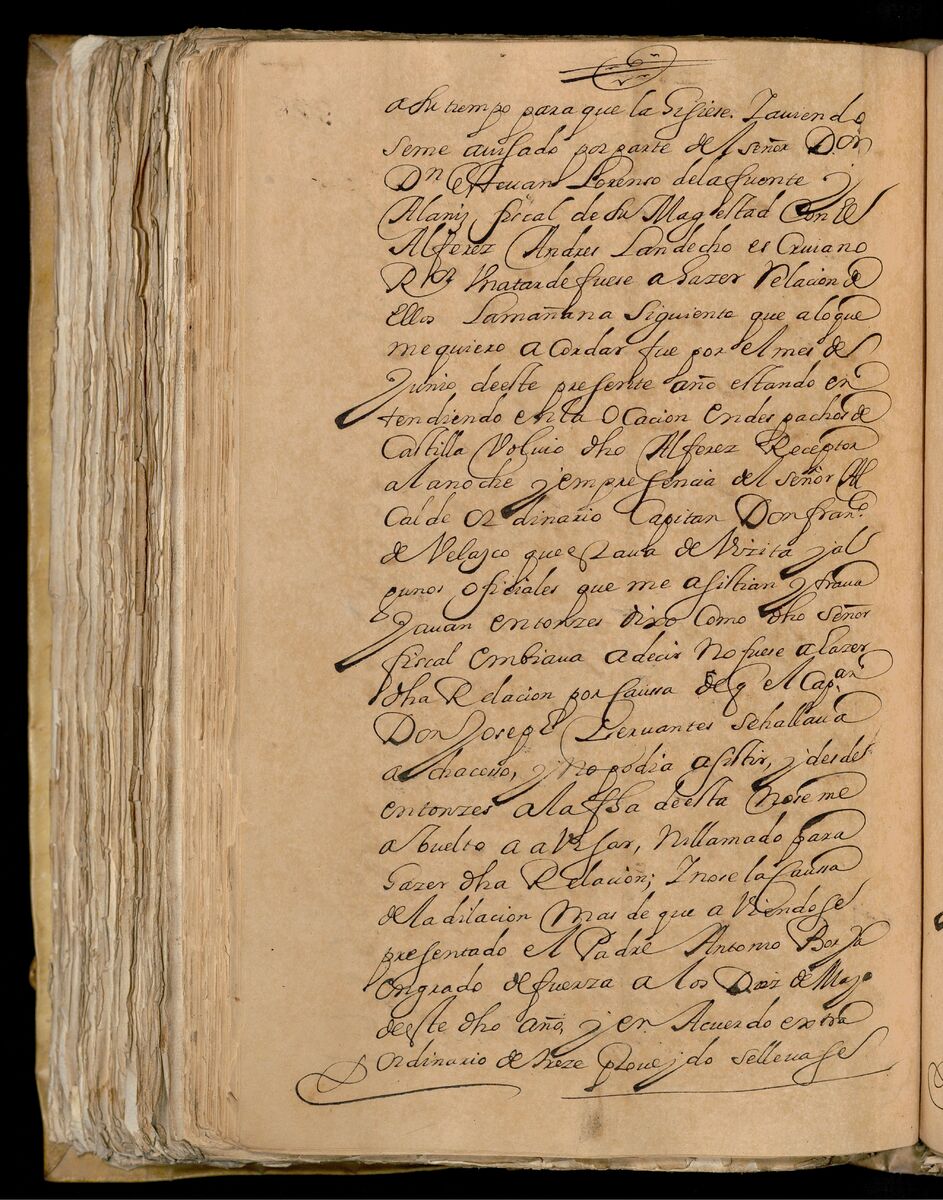 a su tiempo para que la hisiese. Y aviendo
seme avisado por parte del señor D.or
Dn estevan Lorenso de la fuente y
Alaniz, fiscal de su Magestad con el
Alferez Andres Landecho escrivano
una tarde fuese a hazer relacion de
ellos la mañana siguiente que a lo que
me quiero acordar fue por el mes de
Junio de este presente año estando en
tendiendo en la ocacion en despachos de
Castilla volvio dho Alferez Receptor
a la noche y em presencia del señor Al
calde ordinario Capitan Don fran.co
de Velasco que estava de vizita y al
gunos oficiales que me asistian y trava
javan entonzes dixo como dho señor
fiscal embiava a decir no fuese a hazer
dha Relacion por caussa de q el Cap.an
Don Joseph Cervantes se hallava
achacosso, y no podia asistir, y desde
entonzes a la fha de esta no se me
a buelto a avisar, ni llamado para
hazer dha Relacion; Y no se la caussa
de la dilacion mas de que aviendose
presentado el Padre Antonio Borja
en grado de fuerza a los Diez de Mayo
de este dho año, y en Acuerdo extra
ordinario de treze proveydo se llevase